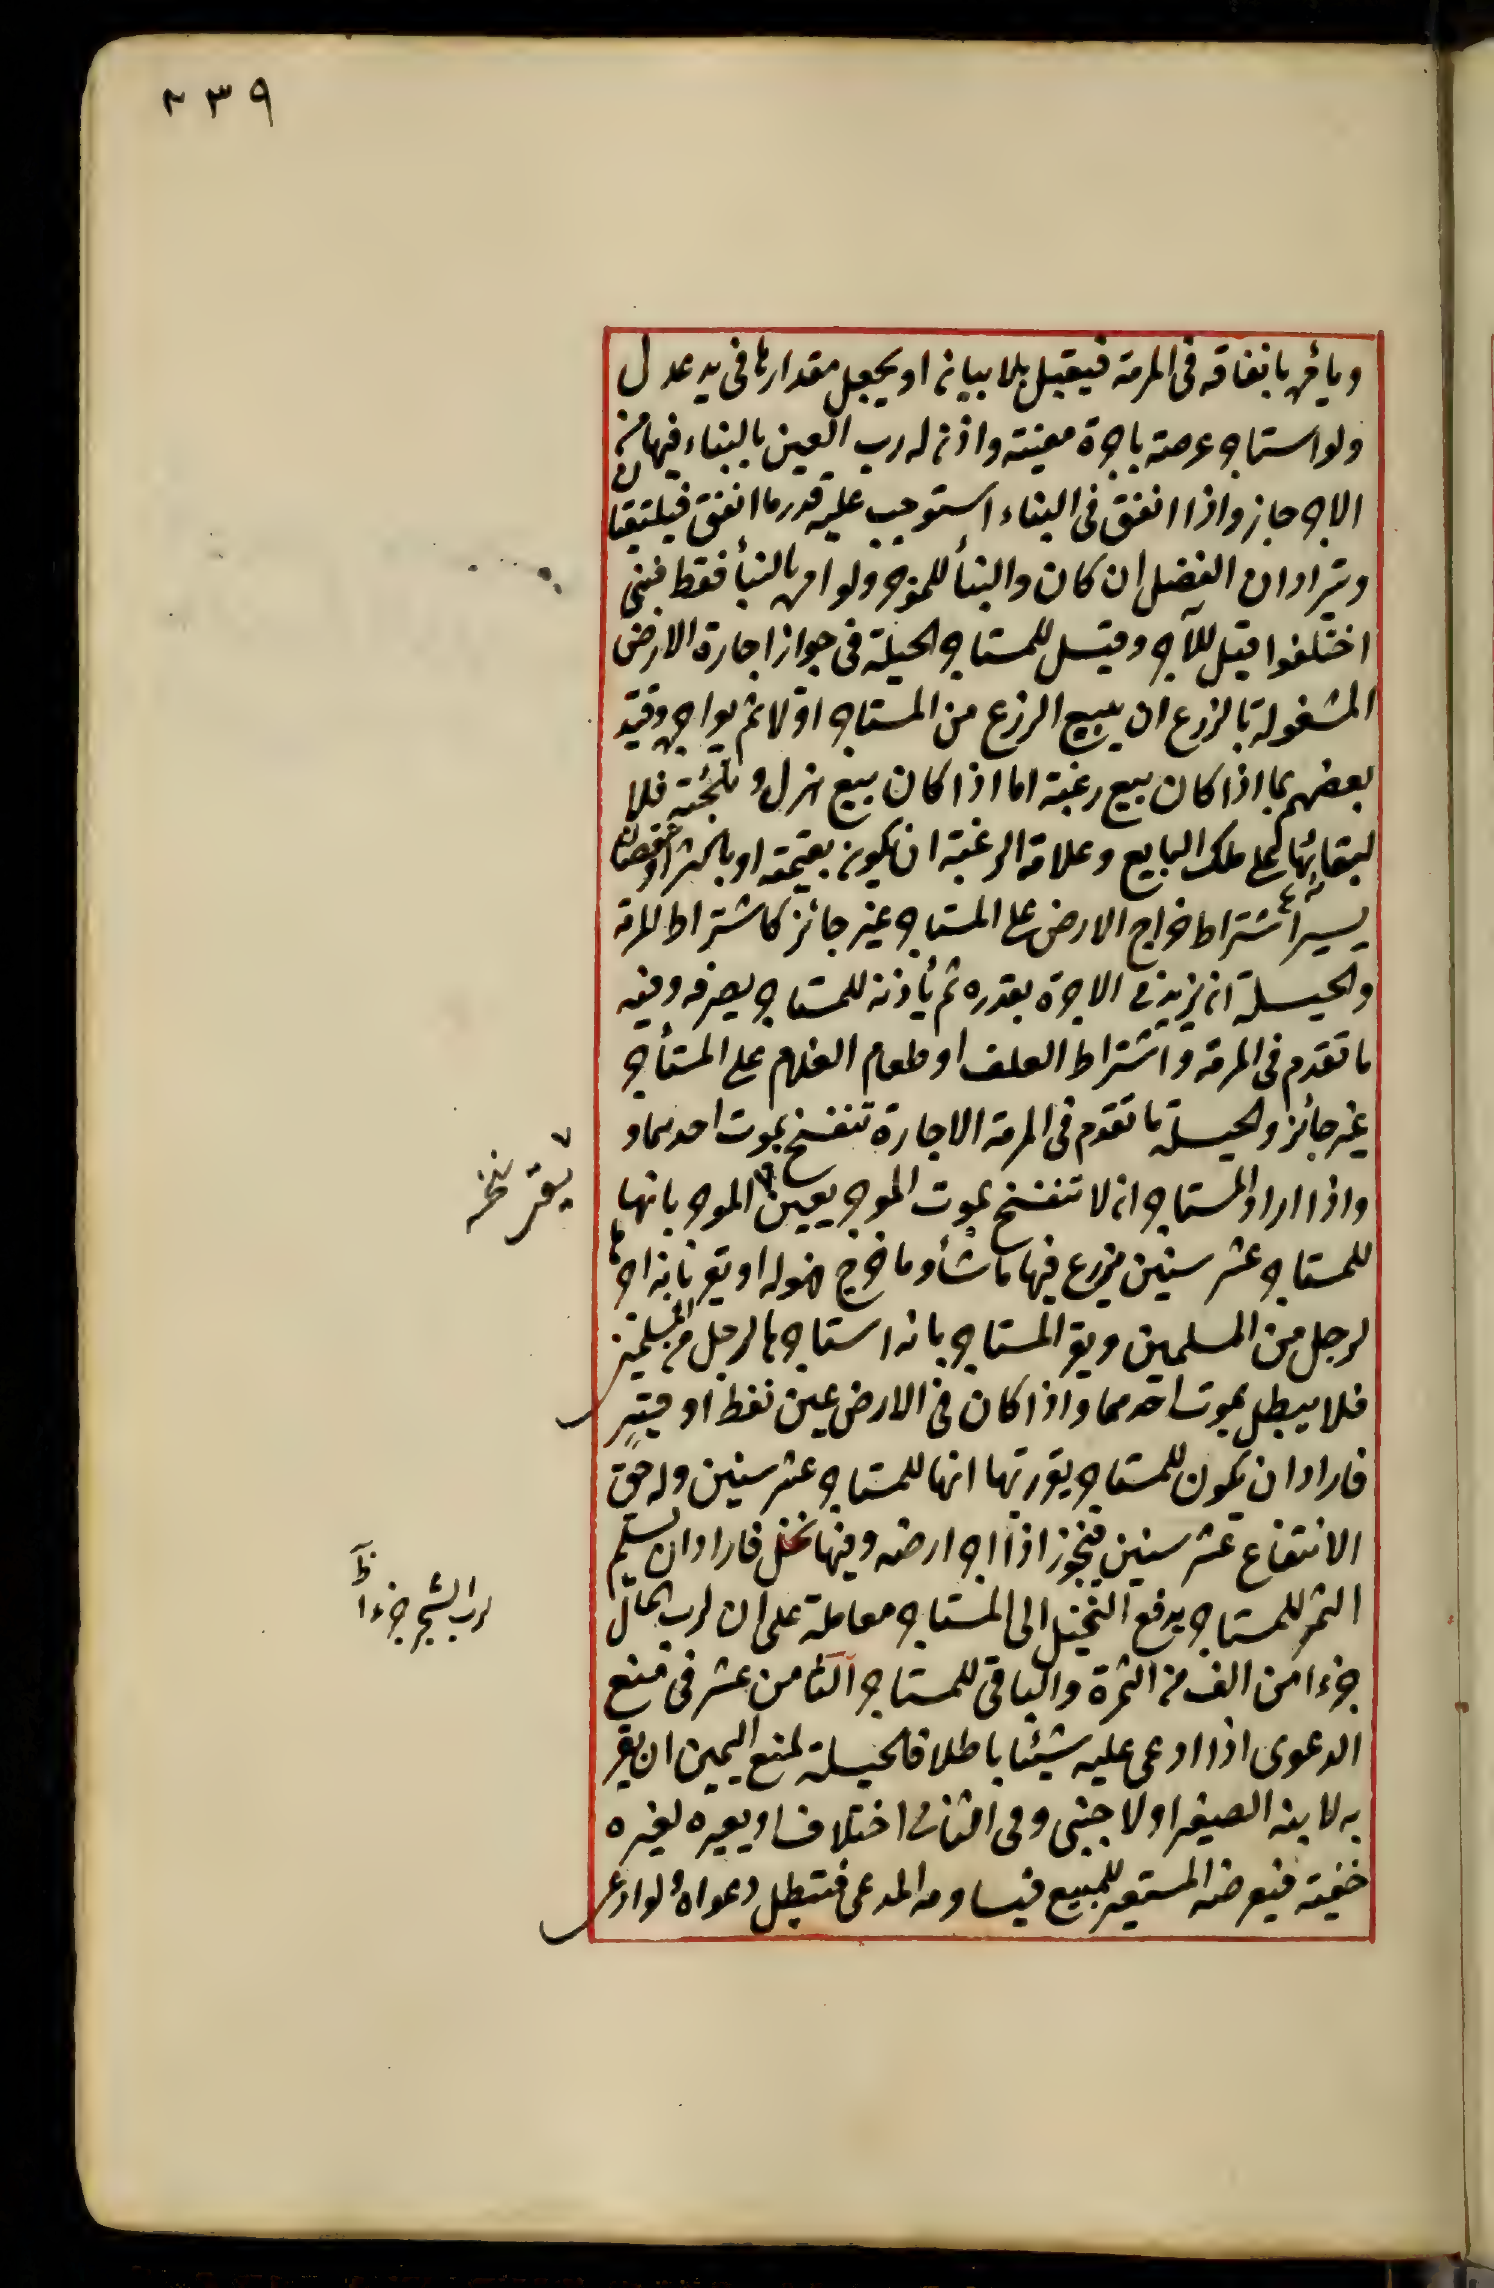 ٢٣٩
ويأمره بانفاقه فى المرمة فيقبل بلا بيان او يجعل مقدارها فى يد عدل
ولو استاجر عرصة باجرة معينة واذن له رب العين بالبناء فيها من
الاجر جاز واذا انفق فى البناء استوجب عليه قدر ما انفق فيلتقيان
ويترادان الفضل ان كان والبنأ للمؤجر ولو امره بالبنأ فقط فبنى
اختلفوا قيل للآجر وقيل للمستاجر الحيلة فى جواز اجارة الارض
المشغولة بالزرع ان يبيع الزرع من المستاجر اولا ثم يواجره وقيد
بعضهم بما اذا كان بيع رغبة اما اذا كان بيع هزل وتلجئة فلا
لبقائها على ملك البايع وعلامة الرغبة ان يكون بقيمته او باكثر او نقصان
يسير اشتراط خراج الارض على المستاجر غير جائز كاشتراط المرمة
والحيلة ان يزيد فى الاجرة بقدره ثم يأذنه للمستاجر بصرفه وفيه
ما تقدم فى المرمة واشتراط العلف او طعام الغلام على المستأجر
غير جائز والحيلة ما تقدم فى المرمة الاجارة تنفسخ بموت احدهما و
واذا اراد المستاجر ان لا تنفسخ بموت الموجر يعين الموجر بانها
للمستاجر عشر سنين يزرع فيها ما شأ وما خرج فهو له او يقر بانه اجرها
لرجل من المسلمين ويقر المستاجر بانه استاجرها لرجل من المسلمين
فلا يبطل بموت احدهما واذا كان فى الارض عين نفط او قير
فاراد ان يكون للمستاجر يقر ربها انها للمستاجر عشر سنين وله حق
الانتفاع عشر سنين فيجوز اذا اجر ارضه وفيها نخل فاراد ان يسلم
الثمر للمستاجر يدفع النخيل الى المستاجر معاملة على ان لرب المال
جزءا من الف من الثمرة والباقى للمستاجر الثامن عشر فى منع
الدعوى اذا ادعى عليه شيئا باطلا فالحيلة لمنع اليمين ان يقر
به لابنه الصغير او لاجنبى وفى الثانى اختلاف او يعيره لغيره
خفية فيعرضه المستعير للبيع فيساومه المدعى فتبطل دعواه ولو ادعى
يقر نسخه
لرب الشجر جزءا ظ